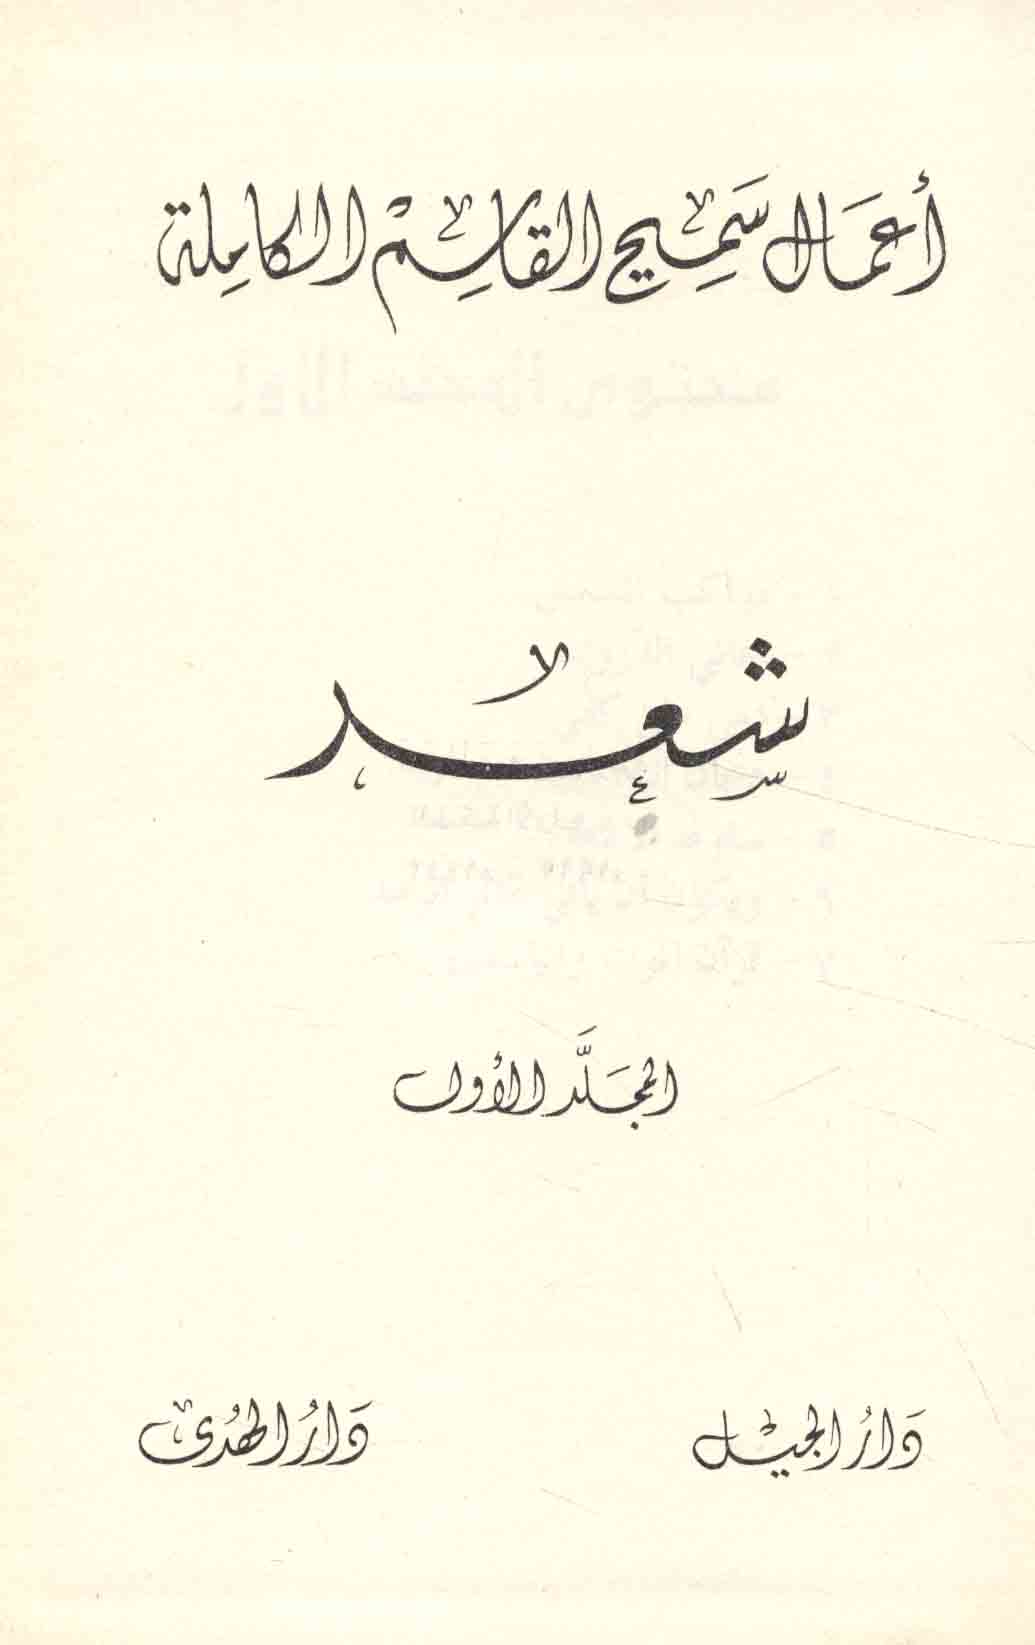 أعمال سميح القاسم الكاملة
شعر
المجلد الأول
دار الجيل
دار الهدى